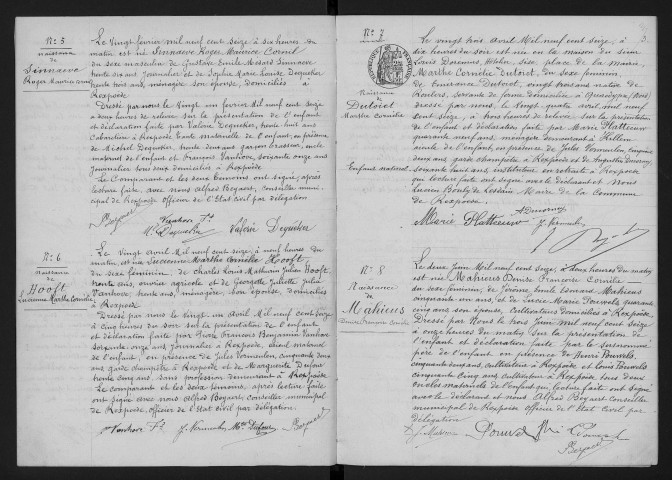 N° 5
naissance
de
Sinnaeve
Roger Maurice Cornil
Le Vingt février mil neuf cent seize à six heures du
matin est né Sinnaeve Roger, Maurice Cornil
du sexe masculin de Gustave Emile Médard Sinnaeve
trente six ans Journalier et de Sophie Marie Louise Dequeker
trente trois ans, ménagère son épouse, domiciliés à
Rexpoëde
Dressé par nous le Vingt un février Mil neuf cent seize
à deux heures de relevée sur la présentation de l'enfant
et déclaration faite par Valérie Dequeker, trente huit ans
Cabaretière à Rexpoëde tante maternelle de l'enfant, en présence
de Michel Dequeker, trente deux ans garçon brasseur, oncle
maternel de l'enfant et François Vanhove, soixante onze ans
Journalier tous deux domiciliés à Rexpoëde
Le Comparant et les deux témoins ont signé, après
lecture faite, avec nous Alfred Bogaert, conseiller muni-
cipal de Rexpoëde officier de l'Etat Civil par délégation
Bogaert Vanhove Fs
M. Dequeker Valérie Dequeker
N° 6
naissance
de
Hooft
Lucienne Marthe Cornélie
Le Vingt avril Mil neuf cent seize, à neuf heures du
matin, est née Lucienne Marthe Cornélie Hooft
du sexe féminin, de Charles Louis Mathurin Jules Hooft,
trente ans, ouvrier agricole et de Georgette Juliette Julia
Vanhove, trente ans, ménagère, son épouse, domiciliés
à Rexpoëde
Dressé par nous le vingt un Avril Mil neuf cent seize
à Cinq heures du soir sur la présentation de l'enfant
et déclaration faite par Pierre François Benjamin Vanhove
soixante onze ans Journalier à Rexpoëde, aïeul maternel
de l'enfant, en présence de Jules Vermeulen, cinquante deux
ans garde champêtre à Rexpoëde et de Marguerite Dufour
trente cinq ans, sans profession demeurant à Rexpoëde
Le comparant et les deux témoins, après lecture faite
ont signé avec nous Alfred Bogaert conseiller municipal
de Rexpoëde, officier de l'Etat Civil par délégation.
Vanhove Fs J. Vermeulen Mte Dufour Bogaert
3
N° 7
Naissance
de
Dutoict
Marthe Cornélie
Enfant naturel
Le vingt trois Avril Mil neuf cent seize, à
dix heures du soir est née en la maison du sieur
Louis Doremus, hôtelier, sise place de la mairie,
Marthe Cornélie Dutoict, du sexe féminin,
de Constance Dutoict, vingt trois ans native de
Roulers, servante de ferme domiciliée à Quaedypre (Nord)
dressé par nous, le vingt quatre avril mil neuf
cent seize, à trois heures de relevée sur la présentation
de l'enfant et déclaration faite par Marie Hatteeuw
quarante neuf ans, ménagère demeurant à Killem
de l'enfant, en présence de Jules Vermeulen, cinquante
deux ans garde champêtre à Rexpoëde et de Augustin
soixante huit ans instituteur en retraite à Rexpoëde
qui lecture faite ont signé avec le déclarant et Nous
Lucien Maire de la Commune
de Rexpoëde
Marie Hatteeuw
J. Vermeulen
N° 8
Naissance
de
Mahieus
Denise Françoise Cornélie
Le deux Juin Mil neuf cent seize, à deux heures du matin
est née Mahieus Denise Françoise Cornélie
du sexe féminin, de Jérémie Louis Edouard Mahieus
cinquante un ans, et de Lucie Marie Pouvels quarante
cinq ans son épouse, Cultivateurs domiciliés à Rexpoëde
Dressé par Nous le trois Juin Mil neuf cent seize
à onze heures du matin sur la présentation de
l'enfant et déclaration faite par le susnommé
père de l'enfant en présence de Henri Pouvels,
cinquante deux ans, cultivateur à Rexpoëde et Louis Pouvels
cinquante cinq ans cultivateur à Rexpoëde, tous deux
oncles maternels de l'enfant qui, lecture faite ont signé avec
le déclarant et nous, Alfred Bogaert conseiller
municipal de Rexpoëde officier de l'Etat Civil par
délégation
Bogaert